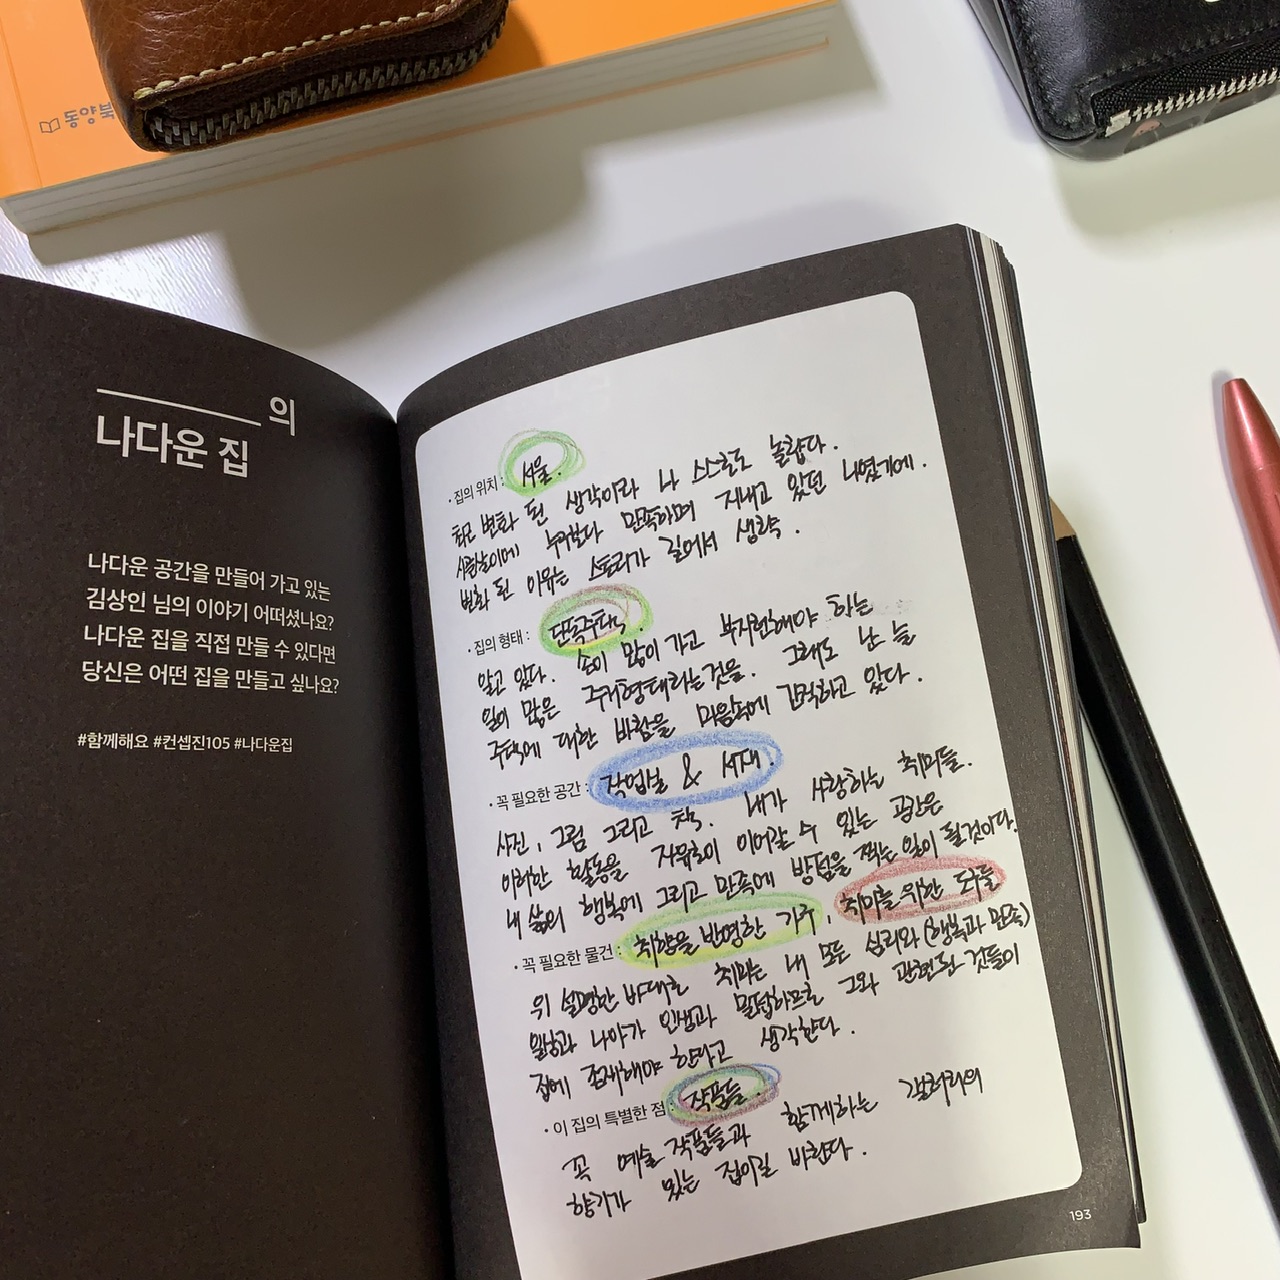 동양북
의
나다운 집
나다운 공간을 만들어 가고 있는
김상인 님의 이야기 어떠셨나요?
나다운 집을 직접 만들 수 있다면
당신은 어떤 집을 만들고 싶나요?
#함께해요 #컨셉진105 #나다운집
· 집의 위치 : 서울.
최근 변화 된 생각이라 나 스스로도 놀랍다.
시골살이에 누구보다 만족하며 지내고 있던 나였기에.
변화 된 이유는 스토리가 길어서 생략.
· 집의 형태 : 단독주택.
알고 있다. 손이 많이 가고 부지런해야 하는
일이 많은 주거형태라는것을. 그래도 난 늘
주택에 대한 바람을 마음속에 간직하고 있다.
· 꼭 필요한 공간 : 작업실 & 서재.
사진, 그림 그리고 책. 내가 사랑하는 취미들.
이러한 활동을 자유로이 이어갈 수 있는 공간은
내 삶의 행복에 그리고 만족에 방점을 찍는 일이 될것이다.
· 꼭 필요한 물건 : 취향을 반영한 가구, 취미를 위한 도구들
위 설명한 바대로 취미는 내 모든 심리와 (행복과 만족)
일상과 나아가 인생과 밀접하므로 그와 관련된 것들이
집에 존재해야 한다고 생각한다.
· 이 집의 특별한 점 : 작품들.
꼭 예술 작품들과 함께하는 갤러리의
향기가 있는 집이길 바란다.
193